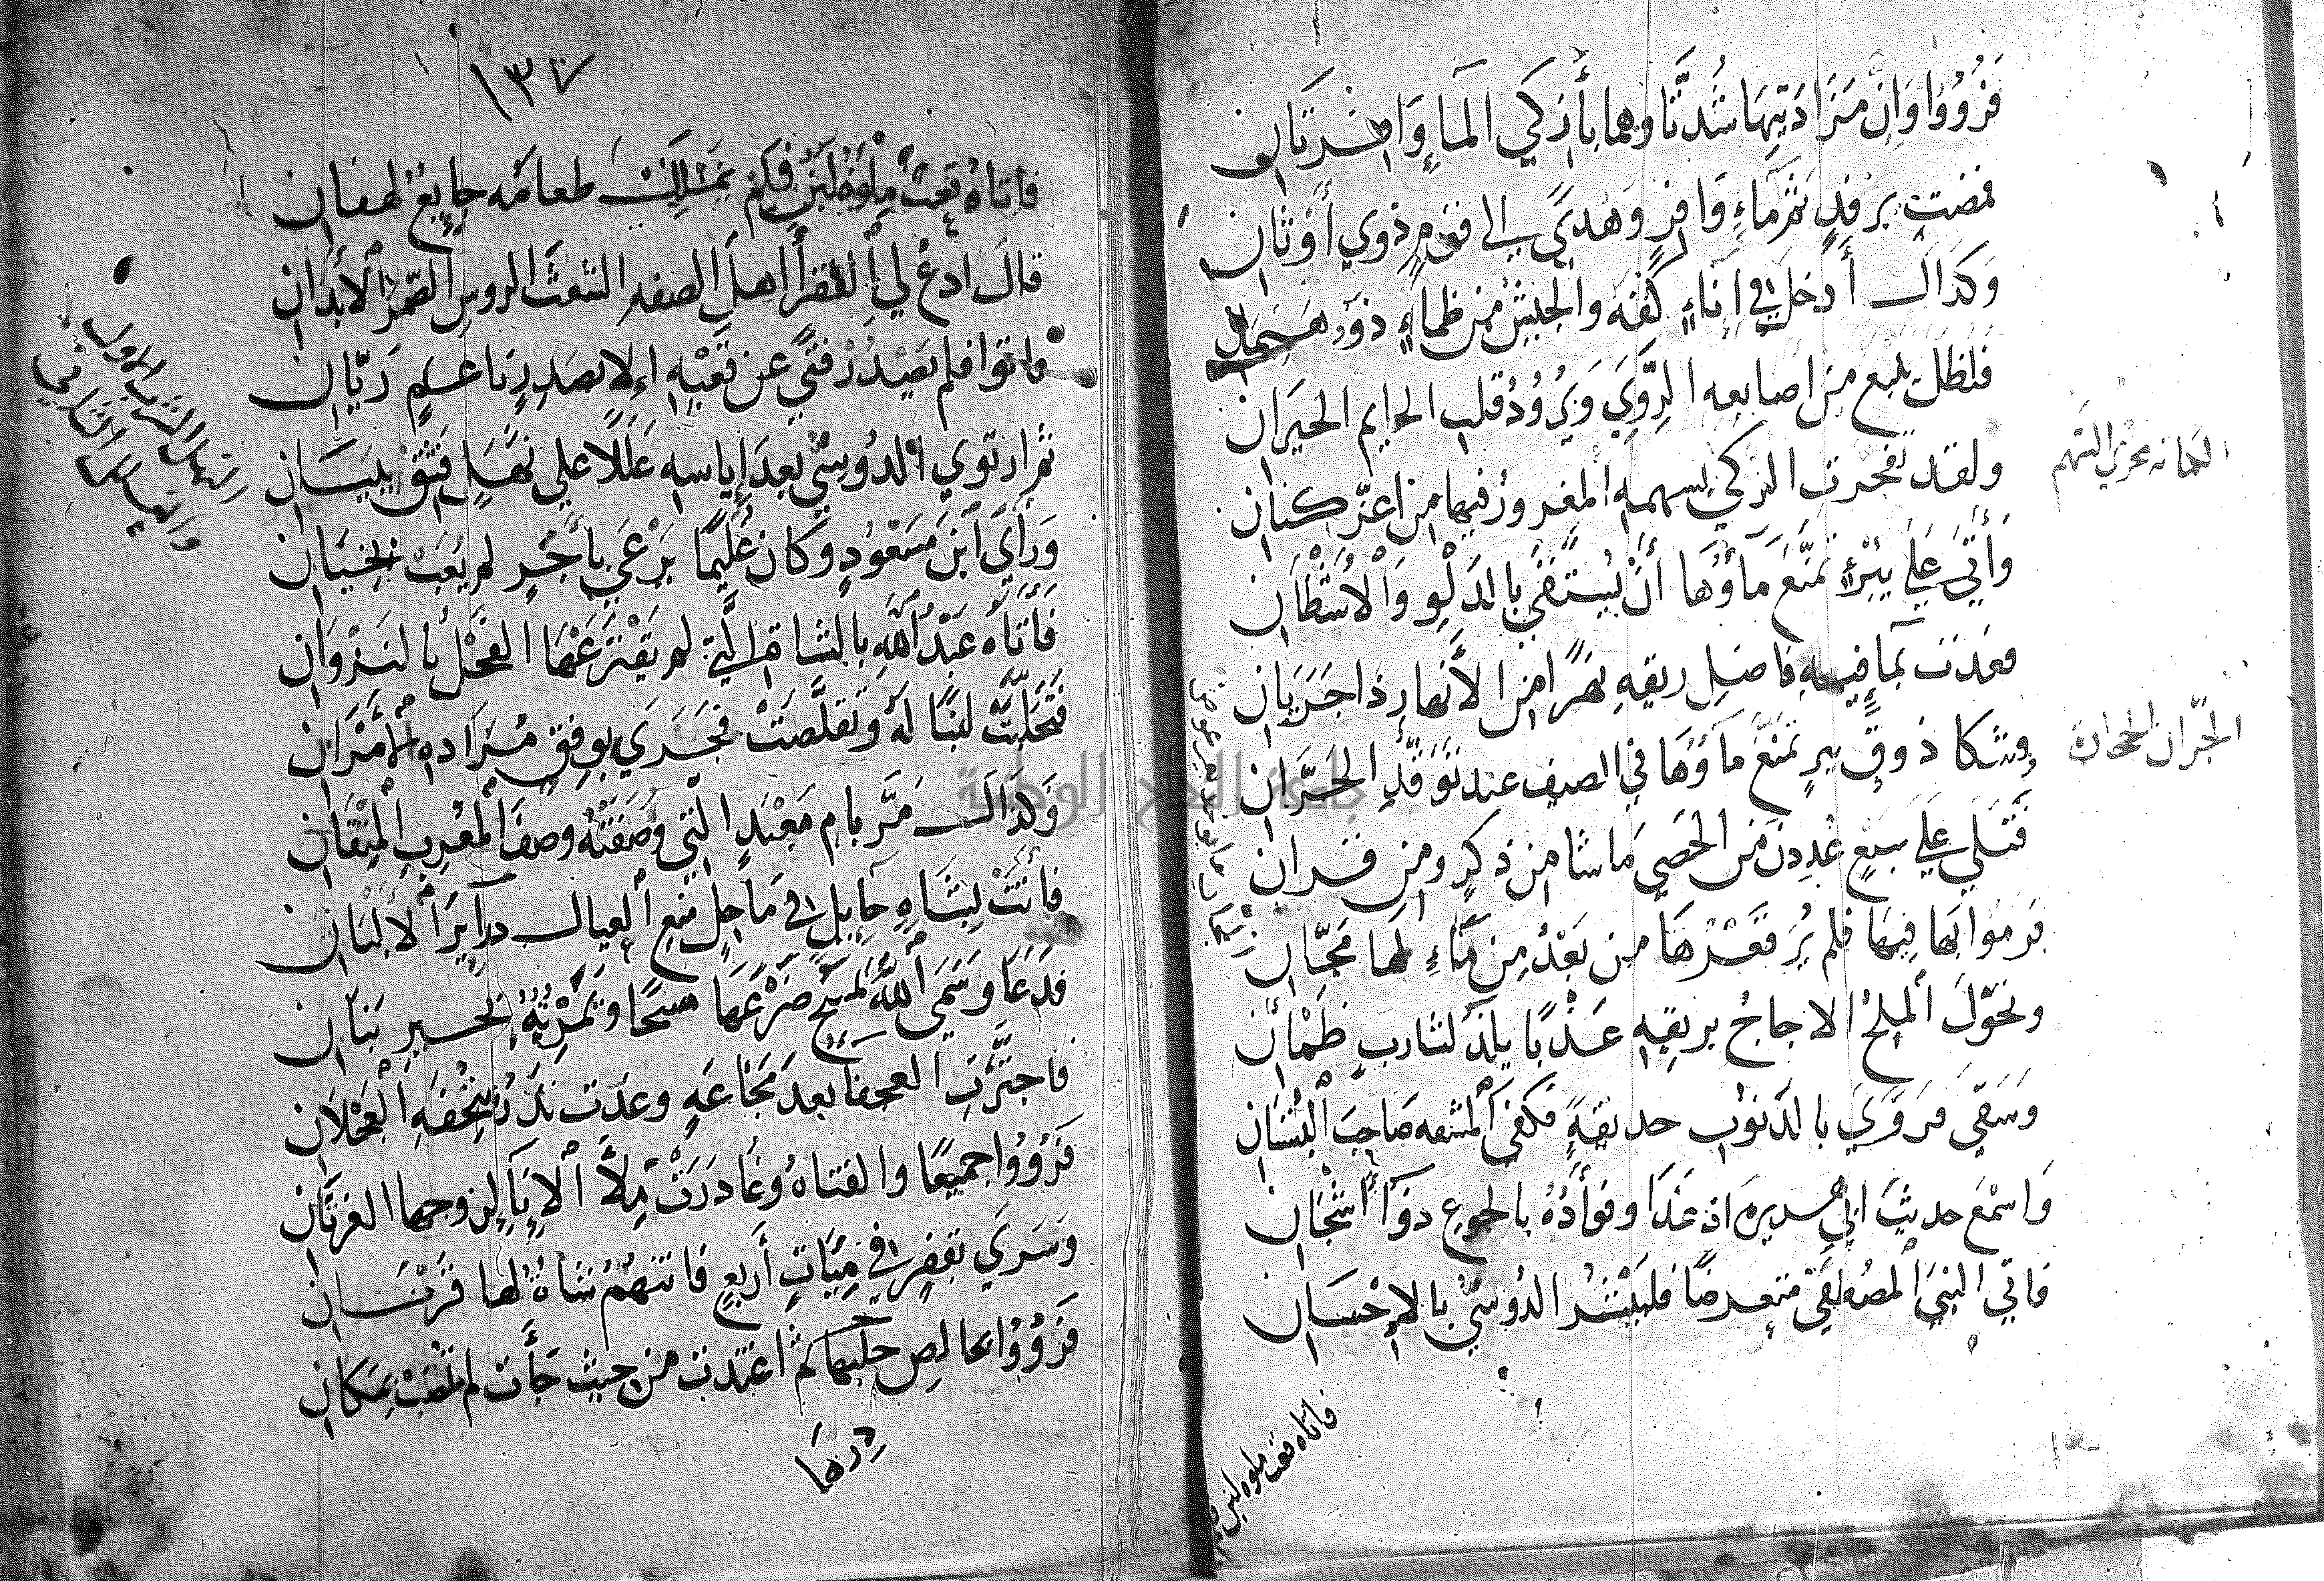 فَرُوُوا وَانَّ مَزَادَتيهَا شُدَّتا وهما بأزكي المآءِ وَافرتان
فمضت برفدٍ ثمّ ماءٍ وَافرٍ وَهُديً الى قومٍ ذوي أوثان
وَكذاك أدخل في اناءٍ كفه والجيش من ظماءٍ ذوو هيمان
فلظل ينبع من اصابعه الرِّوَي وَيُروُدُ قلب الحايم الحيران
ولقد تفجرت الركي بسهمه المغروز فيها من اعزّ كنان
وَأَتَي عَلَي بِئرٍ تمنّع مَآؤُها أن يُستقَي بالدلوِ وَالأشطان
فعدت بما فيهِ فاضلِ ريقهِ نهراً من الأنهار ذا جَريَان
وشكا ذووُ بيرٍ تمنّع مَاؤُها في الصيف عند توَقّدِ الحَرَّان
فَتلي علي سَبعٍ عُدِدن من الحصي مَا شا من ذكرٍ ومن قران
فَرموا بها فيها فلم يُر قعرُها من بَعدُ مِن مَاءٍ لها مَجّان
وتحوّلَ المِلحُ الاجاجُ بريقِه عَذباً يلذّ لشاربٍ ظمآن
وَسَقي فروّي بالذنوب حديقةً فكفي المشقه صَاحِبَ البُستان
وَاسمَع حديثَ ابي هريره اذ غدَا وفؤادُهُ بالجوع ذو أشجان
فاتي النبيَ المصطفي متعرضاً فليَبشُر الدُوسيّ بالاحسَان
العانه بحزي السهم
الحَرّان العطشان
فاتاه قعب ملوه لبن فلم
١٣٧
فاتاهُ قعبٌ مِلؤهُ لبنٌ فلم يَمنلك طعامَه جايعٌ لهفان
قالَ ادعُ لي الفقرأ اهلَ الصفه الشعثَ الروسِ الضّمرَ الأبدان
فاتوا فلم يَصدُر فتيً عن قَعبِه إلا بصَدرٍ ناعمٍ رَيّان
ثم ارتوي الدُوسيّ بعدَ إياسِه عَلَلاً علي نَهَلٍ فثق ببيَان
وَرَأي ابنَ مسَعُودٍ وكان غُليّماً يَرعَي بأجرٍ لم يُعَب بخيَان
فَأتَاه عَبدُ اللهِ بالشاةِ التي لم يَقترِعها الفَحلُ بالنزوَان
فتحلّبت لبناً لهُ وتقلّصَت فجَرَي بوفقِ مُرَادِه الأمرَان
وَكذاك مَرَّ بام مَعبَدٍ التي وَصَفَتهُ وصفَ المُعرِبِ المِتقَان
فاتَت بِشَاةٍ حايلٍ في ماحلٍ منع العيال درايرَ الألبَان
فَدعَا وسَمّي اللهَ يمسَح ضَرعَها مسحاً وتَمريه بخيرِ بَنَان
فاجترّت العجفا بعدَ مَجَاعَهٍ وغدت تَدُرّ بتحفَهِ العَجلاَن
فَرَوُوا جميعاً والفتاهُ وغادَرَت مِلأَ الإِنَآ لزوجها الغرثان
وَسَرَي بقفرٍ في مِئيَاتٍ أربعٍ فاتتهُمُ شاةٌ لها قرنَان
فَرَوُوا بخالِصِ حلبها ثم اغتدت من حيث جَأت لم تُصَب بمكان
درها